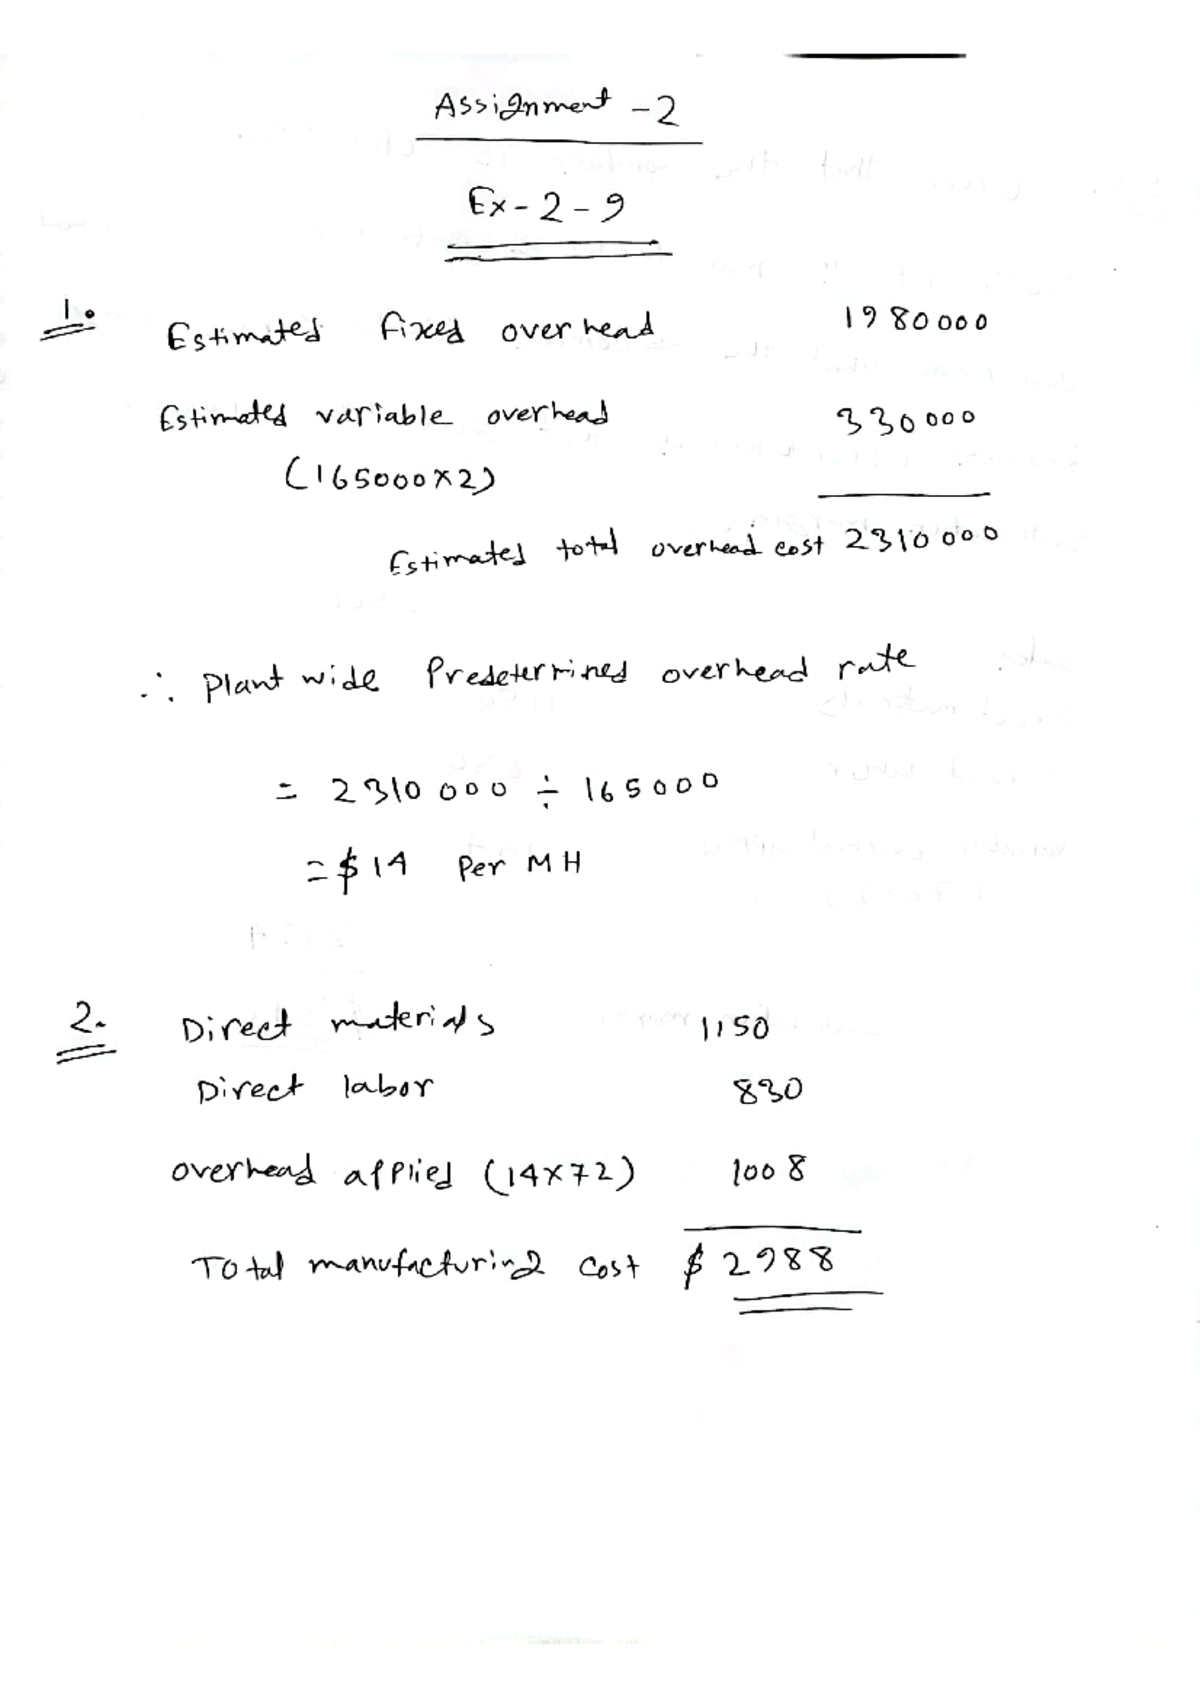 Assignment - 2
Ex - 2 - 9
1. Estimated fixed overhead 1980000
Estimated variable overhead 330000
(165000×2)
Estimated total overhead cost 2310000
∴ Plant wide Predetermined overhead rate
= 2310000 ÷ 165000
= $14 Per MH
2. Direct materials 1150
Direct labor 830
overhead applied (14×72) 1008
Total manufacturing cost $2988